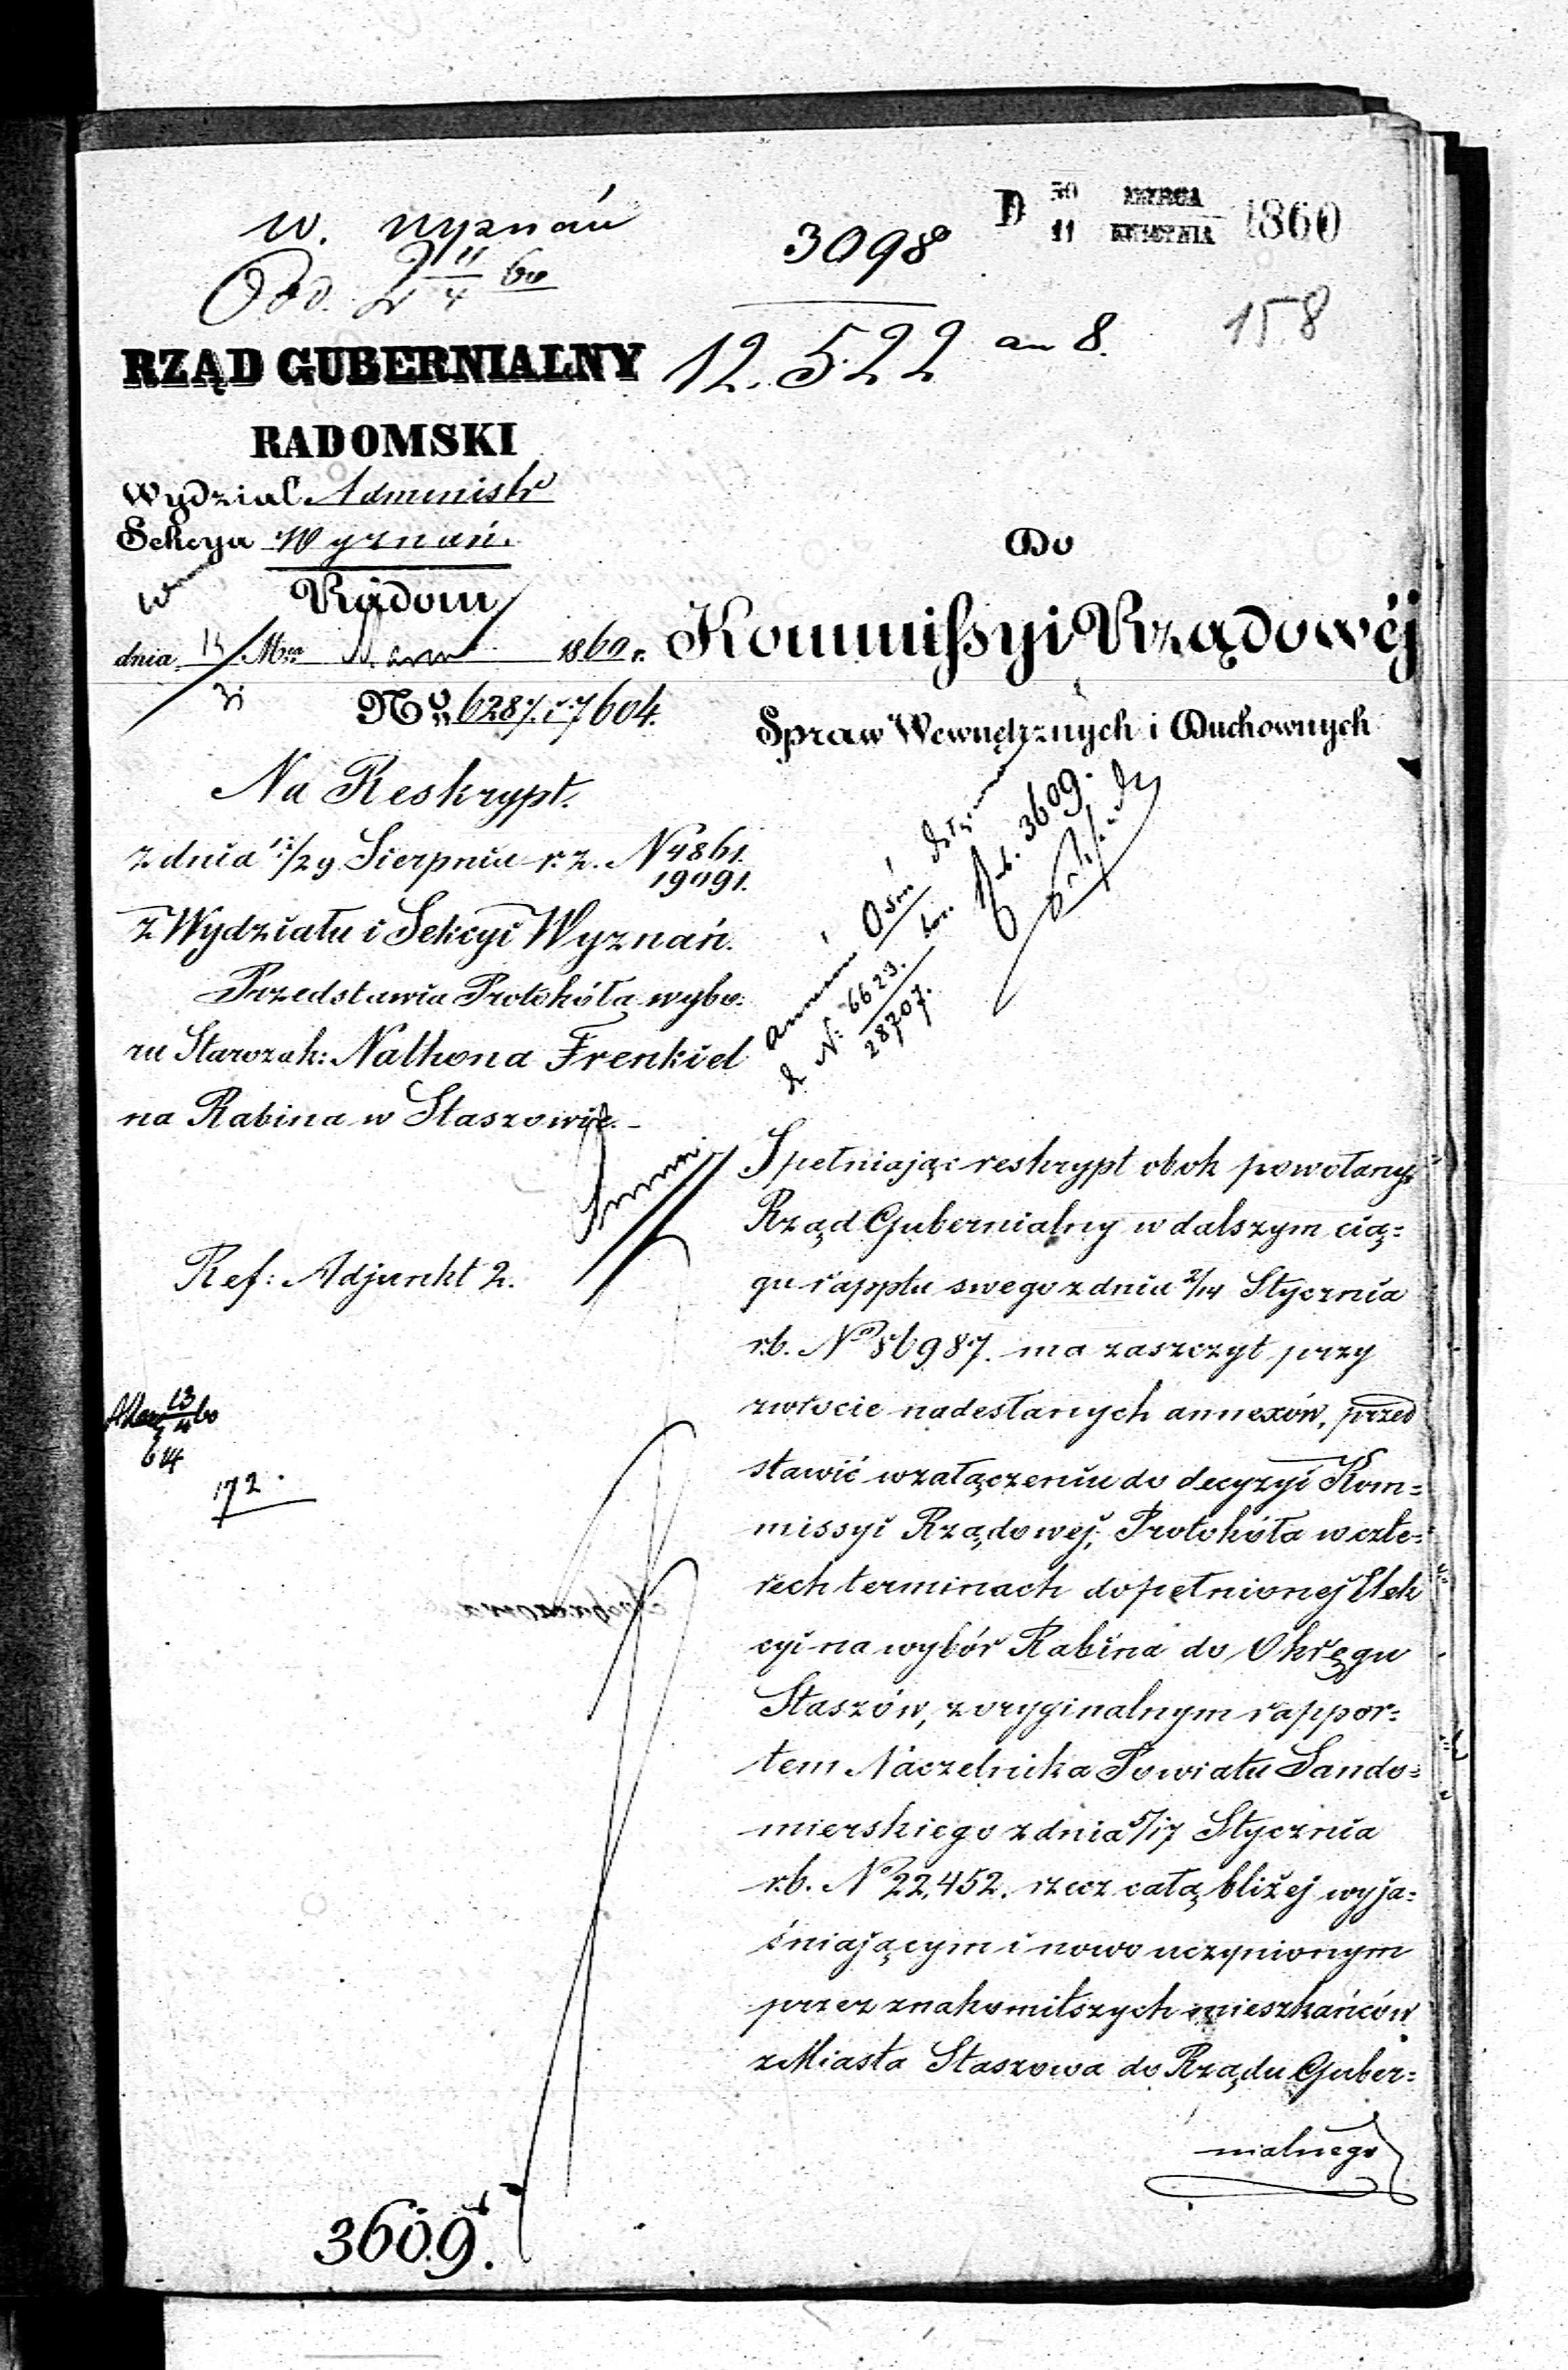 W. Wyznań
3098
D 30 MARCA
11 KWIETNIA 1860
Odd. 2 11/4 60
12.522 an 8.
158
RZĄD GUBERNIALNY
RADOMSKI
Wydział Administr
Sekcya Wyznań.
Radom
dnia Mca 1860 r.
No 6287. i 7604.
Do
Kommissyi Rządowéj
Spraw Wewnętrznych i Duchownych
Na Reskrypt.
z dnia /29 Sierpnia r. z. N 4861.
19091.
z Wydziału i Sekcyi Wyznań.
Przedstawia Protokóła wybo:
ru Starozak: Nathona Frenkiel
na Rabina w Staszowie.
Ref: Adjunkt 2.
N: 6623.
28707.
3609.
13/4 60
614
172.
Spełniając reskrypt obok powołany
Rząd Gubernialny w dalszym cią=
gu rapptu swego z dnia 2/14 Stycznia
r.b. No 86987. ma zaszczyt przy
zwrocie nadesłanych annexów, przed
stawić w załączeniu do decyzyi Kom=
missyi Rządowej, Protokóła w czte=
rech terminach dopełnionej Elek
cyi na wybór Rabina do Okręgu
Staszów, z oryginalnym rappor=
tem Naczelnika Powiatu Sando=
mierskiego z dnia 5/17 Stycznia
r.b. No 22,452. rzecz całą bliżej wyja=
śniającym i nowo uczynionym
przez znakomitszych mieszkańców
z Miasta Staszowa do Rządu Guber=
nialnego
3609.